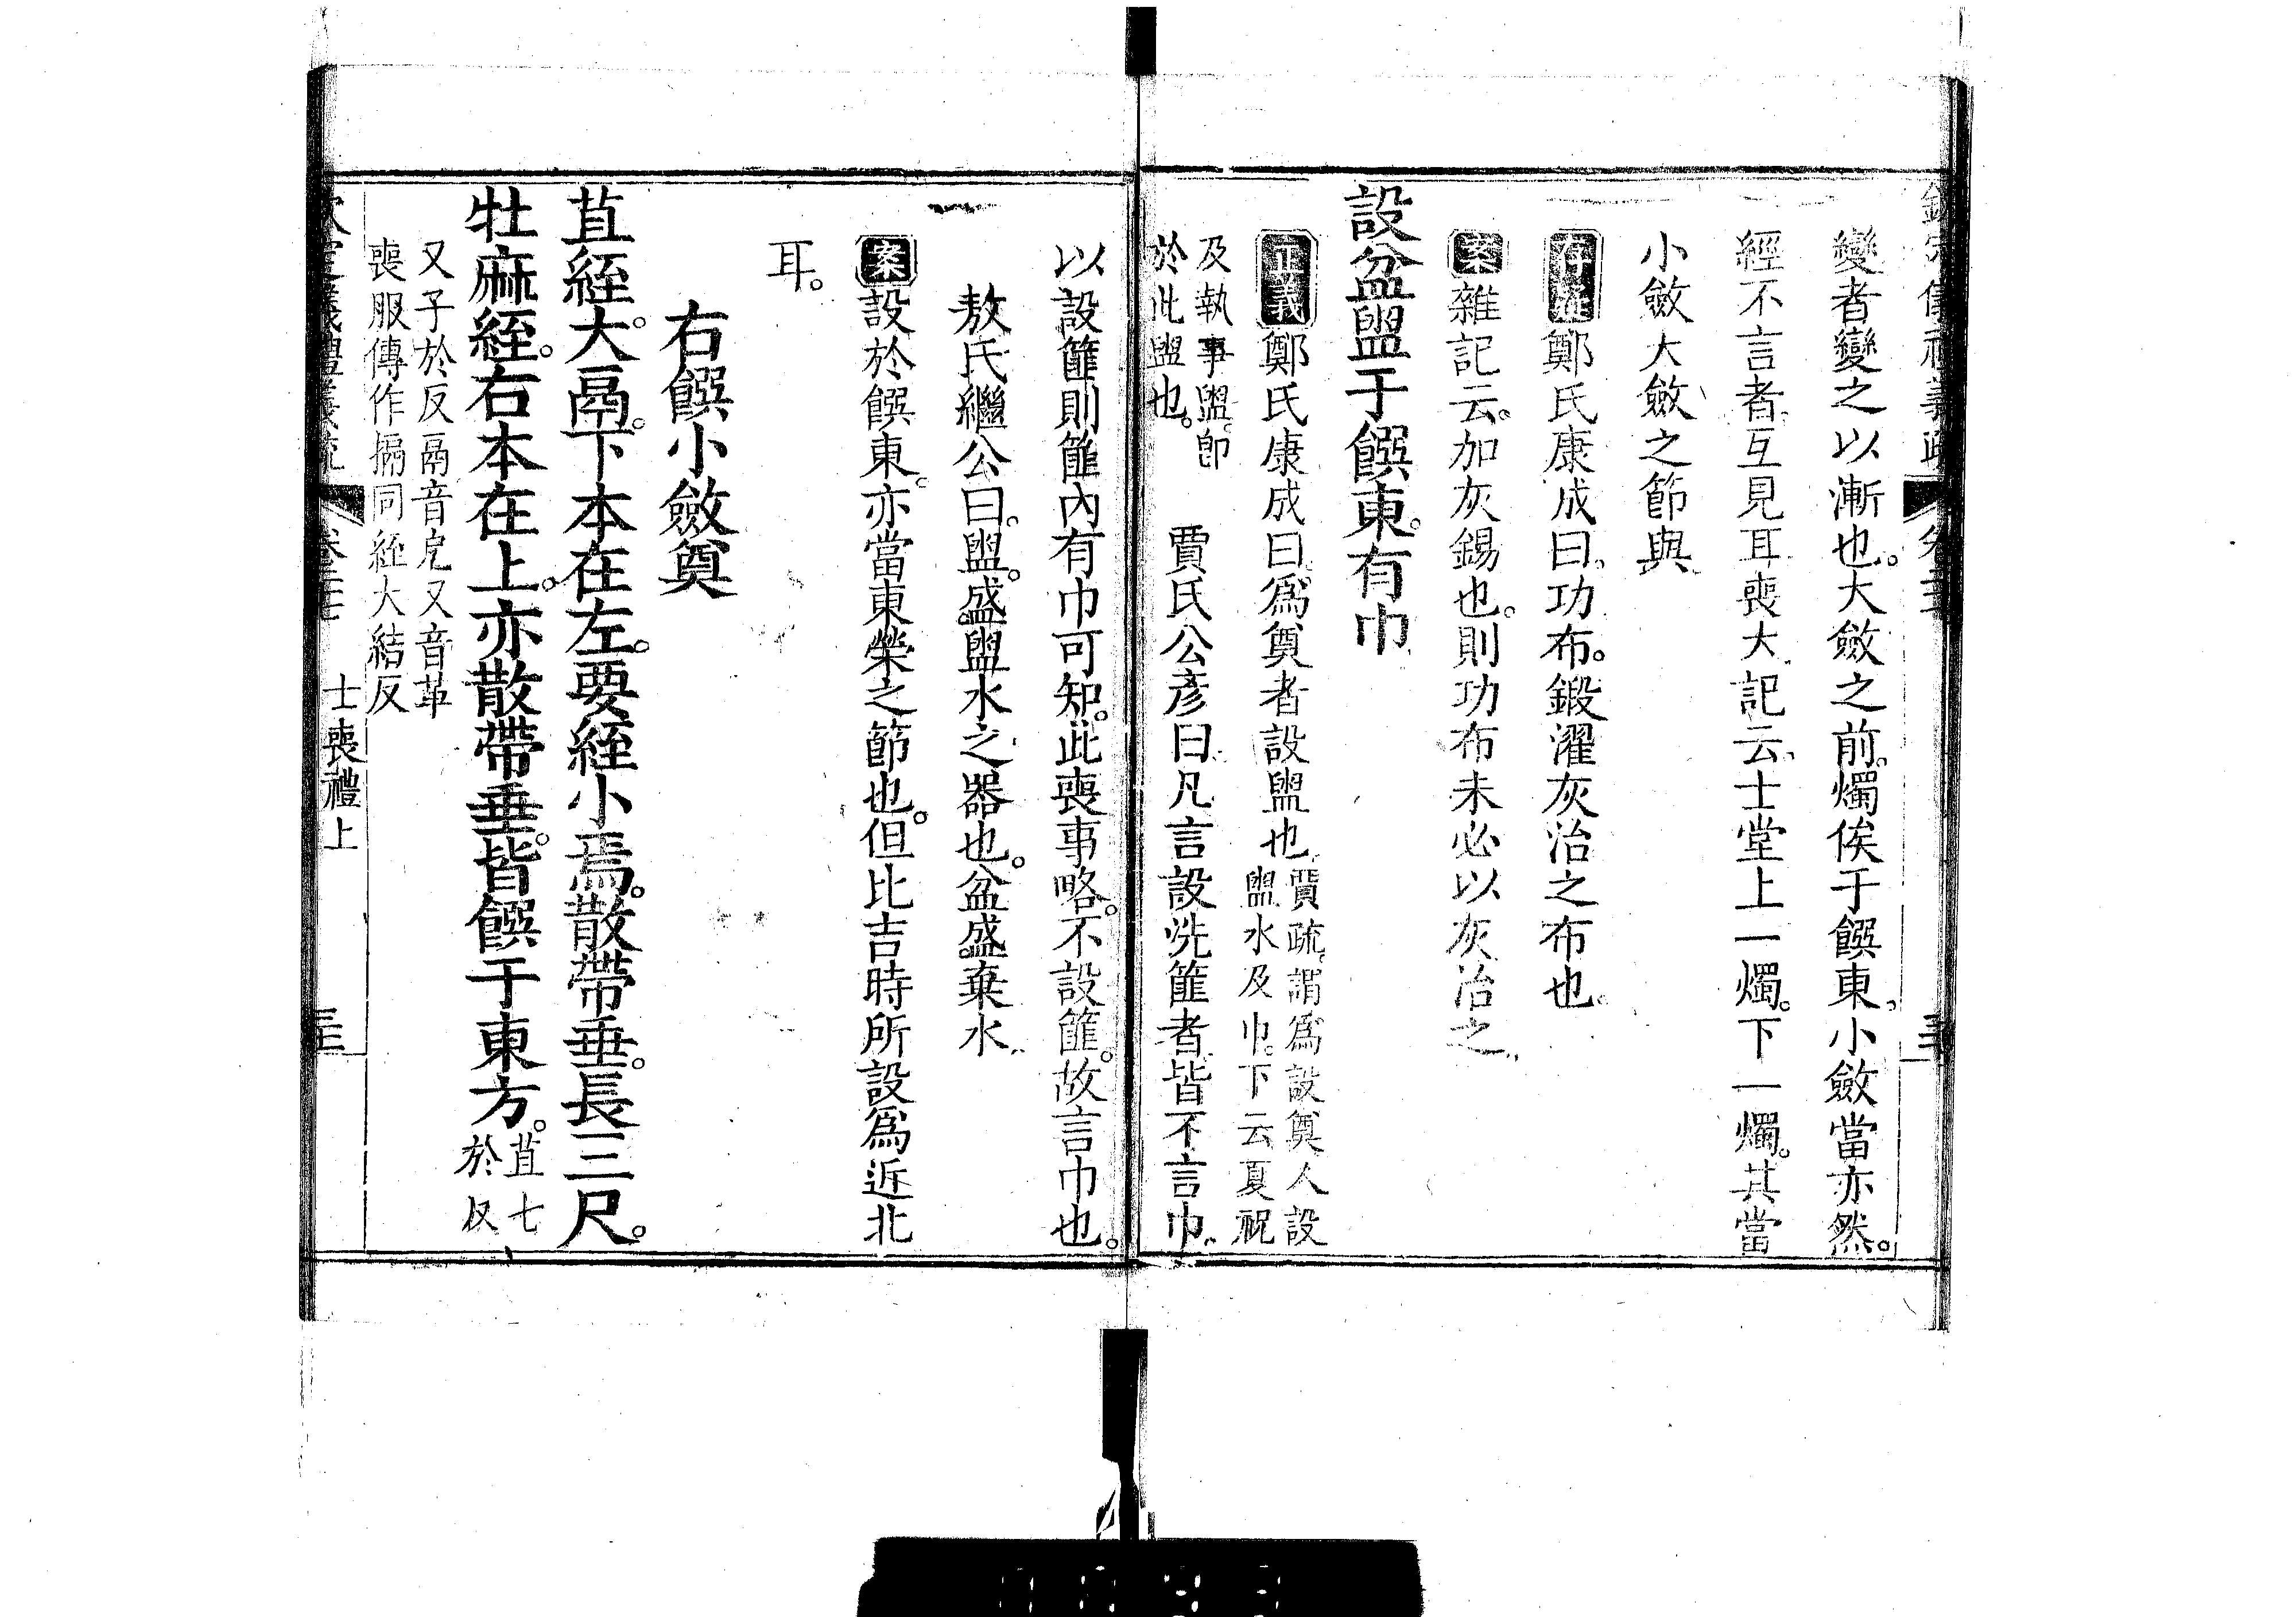 變者變之以漸也。大斂之前。燭俟于饌東。小斂當亦然。
經不言者。互見耳。喪大記云。士堂上一燭。下一燭。其當
小斂大斂之節與
存疑鄭氏康成曰。功布。鍛濯灰治之布也。
案雜記云。加灰錫也。則功布未必以灰治之。
設盆盥于饌東。有巾
正義鄭氏康成曰。爲奠者設盥也。賈疏。謂爲設奠人設
盥水及巾。下云夏祝
及執事盥。卽
於此盥也。
賈氏公彥曰。凡言設洗篚者。皆不言巾。
以設篚則篚內有巾可知。此喪事略。不設篚。故言巾也。
敖氏繼公曰。盥。盛盥水之器也。盆。盛棄水。
案設於饌東。亦當東榮之節也。但比吉時所設爲近北
耳。
右饌小斂奠
苴絰。大鬲。下本在左。要絰小焉。散帶垂。長三尺。
牡麻絰。右本在上。亦散帶垂。皆饌于東方。苴七
於反
又子於反鬲音戹又音革
喪服傳作搹同絰大結反
士喪禮上